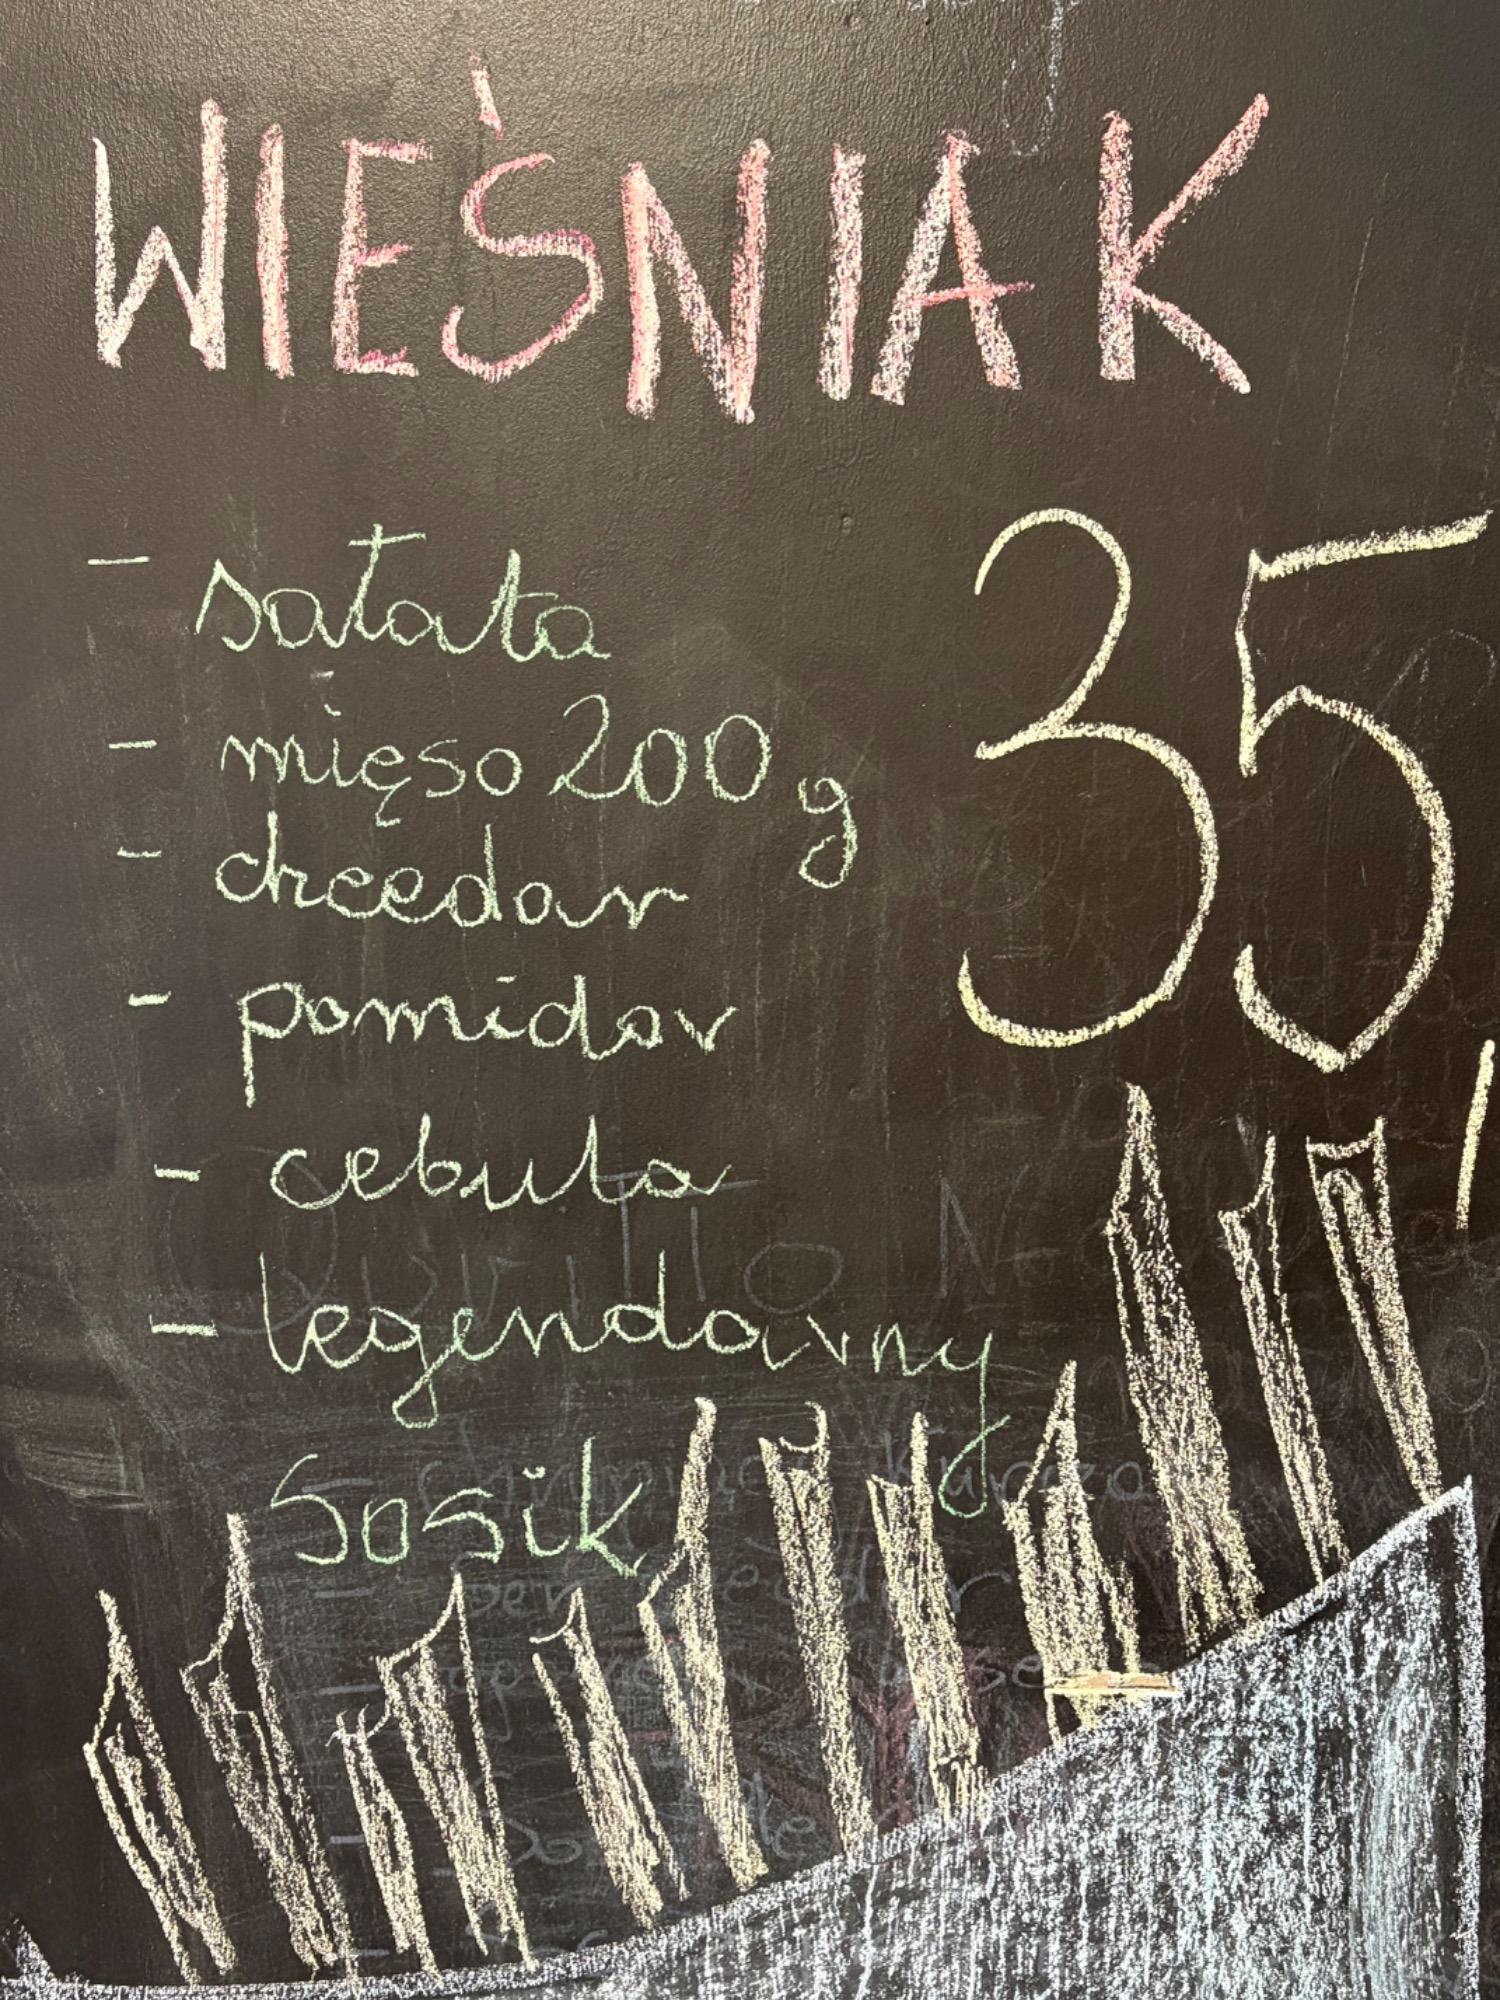 WIEŚNIAK
- sałata
- mięso 200 g
- cheedar
- pomidor
- cebula
- legendarny
sosik
35